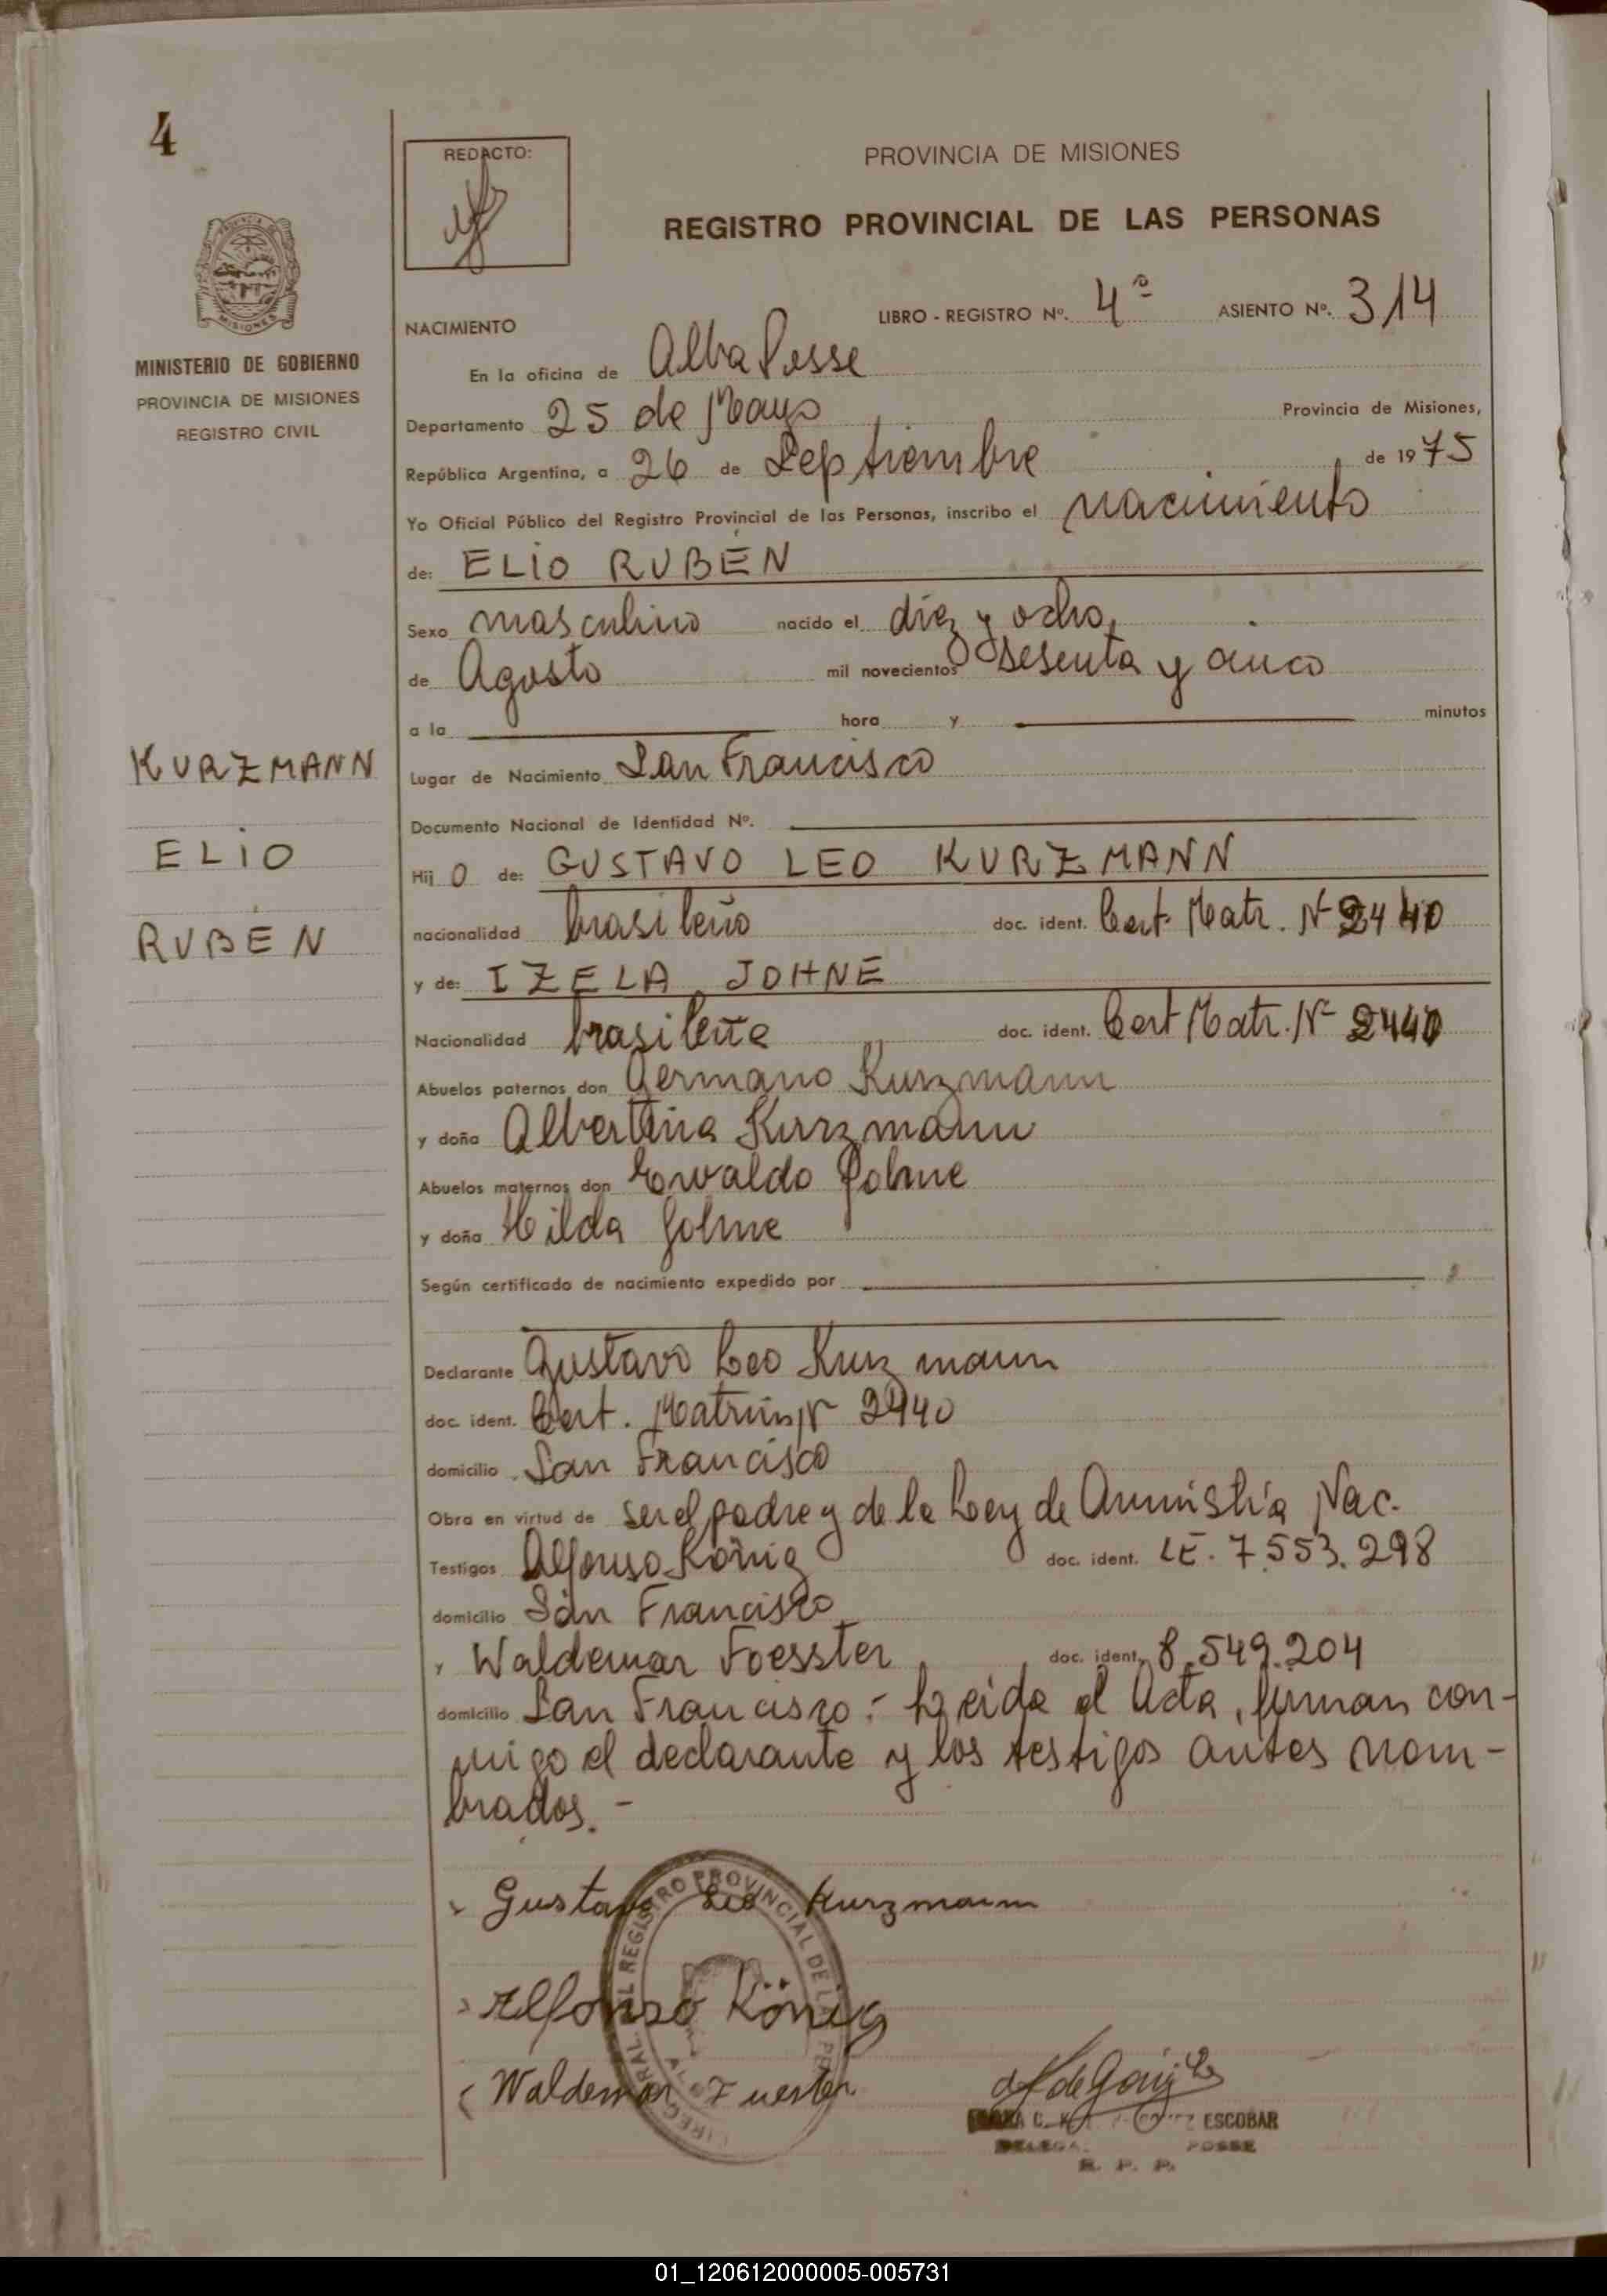 4
REDACTO:
PROVINCIA DE MISIONES
REGISTRO PROVINCIAL DE LAS PERSONAS
LIBRO - REGISTRO Nº. 4º ASIENTO Nº. 314
MISIONES
MINISTERIO DE GOBIERNO
PROVINCIA DE MISIONES
REGISTRO CIVIL
KURZMANN
ELIO
RUBÉN
NACIMIENTO
En la oficina de Alba Posse
Departamento 25 de Mayo Provincia de Misiones,
República Argentina, a 26 de Septiembre de 1975
Yo Oficial Público del Registro Provincial de las Personas, inscribo el nacimiento
de: ELIO RUBÉN
Sexo masculino nacido el diez y ocho
de Agosto mil novecientos sesenta y cinco
a la hora y minutos
Lugar de Nacimiento San Francisco
Documento Nacional de Identidad Nº.
Hij O de: GUSTAVO LEO KURZMANN
nacionalidad brasileño doc. ident. Cert. Matr. Nº 2440
y de: IZELA JOHNE
Nacionalidad brasileña doc. ident. Cert Matr. Nº 2440
Abuelos paternos don Germano Kurzmann
y doña Albertina Kurzmann
Abuelos maternos don Ewaldo Johne
y doña Hilda Johne
Según certificado de nacimiento expedido por
Declarante Gustavo Leo Kurzmann
doc. ident. Cert. Matrim Nº 2440
domicilio San Francisco
Obra en virtud de ser el padre y de la Ley de Amnistía Nac.
Testigos Alfonso König doc. ident. LE. 7.553.298
domicilio San Francisco
y Waldemar Foesster doc. ident. 8.549.204
domicilio San Francisco.- Leida el Acta, firman con-
migo el declarante y los testigos antes nom-
brados.-
Gustavo Leo Kurzmann
Alfonso König
Waldemar Fuester
REGISTRO PROVINCIAL DE
ESCOBAR
POSSE
R. P. P.
01_120612000005-005731